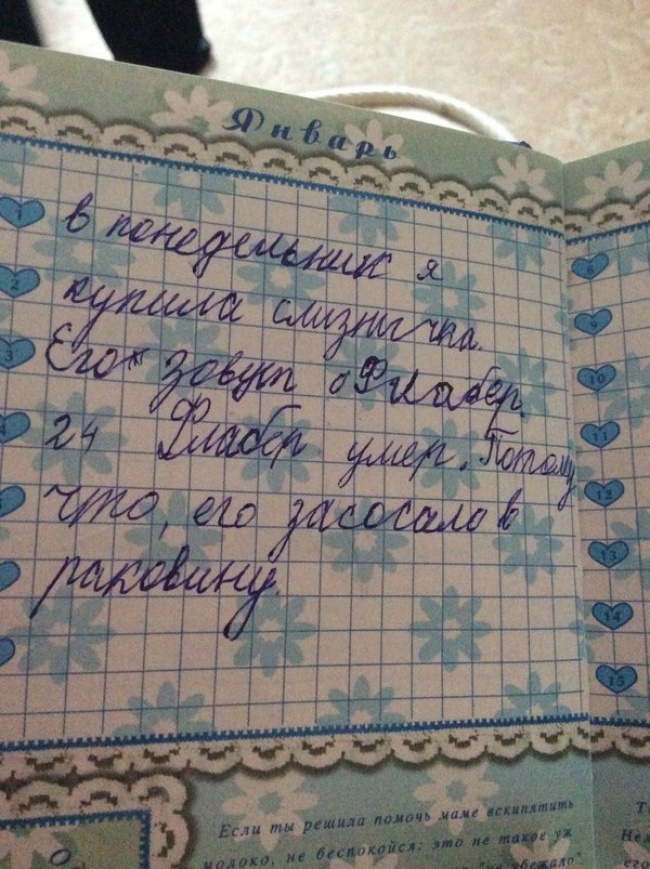 Январь
1
в понедельник я
2
купила слизнычка.
3
Его зовут Флабер.
4
24 Флабер умер. Потому
что, его засосало в
раковину.
8
9
10
11
12
13
14
15
Если ты решила помочь маме вскипятить
молоко, не беспокойся: это не такое уж
"не убежало".